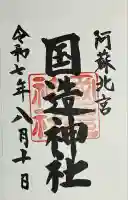 阿蘇北宮
国造神社
令和七年八月十日